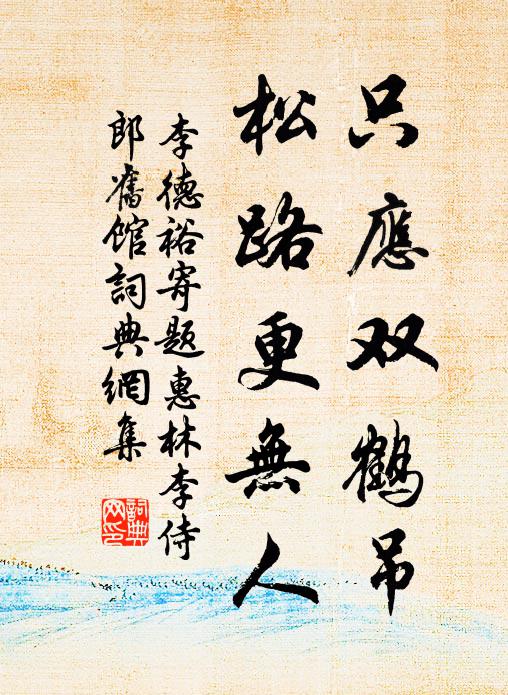 只應双鹤吊
松路更無人
李德裕寄题惠林李侍
郎舊馆詞典網集
詞典
网印